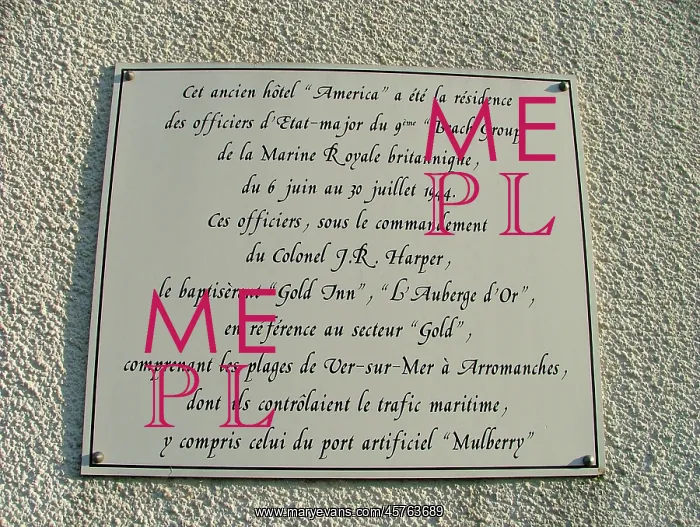 Cet ancien hôtel "America" a été la résidence
des officiers d'Etat-major du 9ème "Beach Group"
de la Marine Royale britannique,
du 6 juin au 30 juillet 1944.
Ces officiers, sous le commandement
du Colonel J.R. Harper,
le baptisèrent "Gold Inn", "L'Auberge d'Or",
en référence au secteur "Gold",
comprenant les plages de Ver-sur-Mer à Arromanches,
dont ils contrôlaient le trafic maritime,
y compris celui du port artificiel "Mulberry"
ME
PL
ME
PL
www.maryevans.com/45763689